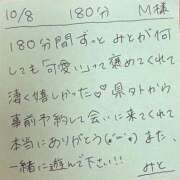 10/8 180分 M様
180分間ずっとみとが何
しても「可愛い」って褒めてくれて
凄く嬉しかった♡県外から
事前予約して会いに来てくれて
本当にありがとう(๑˃̵ᴗ˂̵)また、
一緒に遊んで下さい!!!
みと